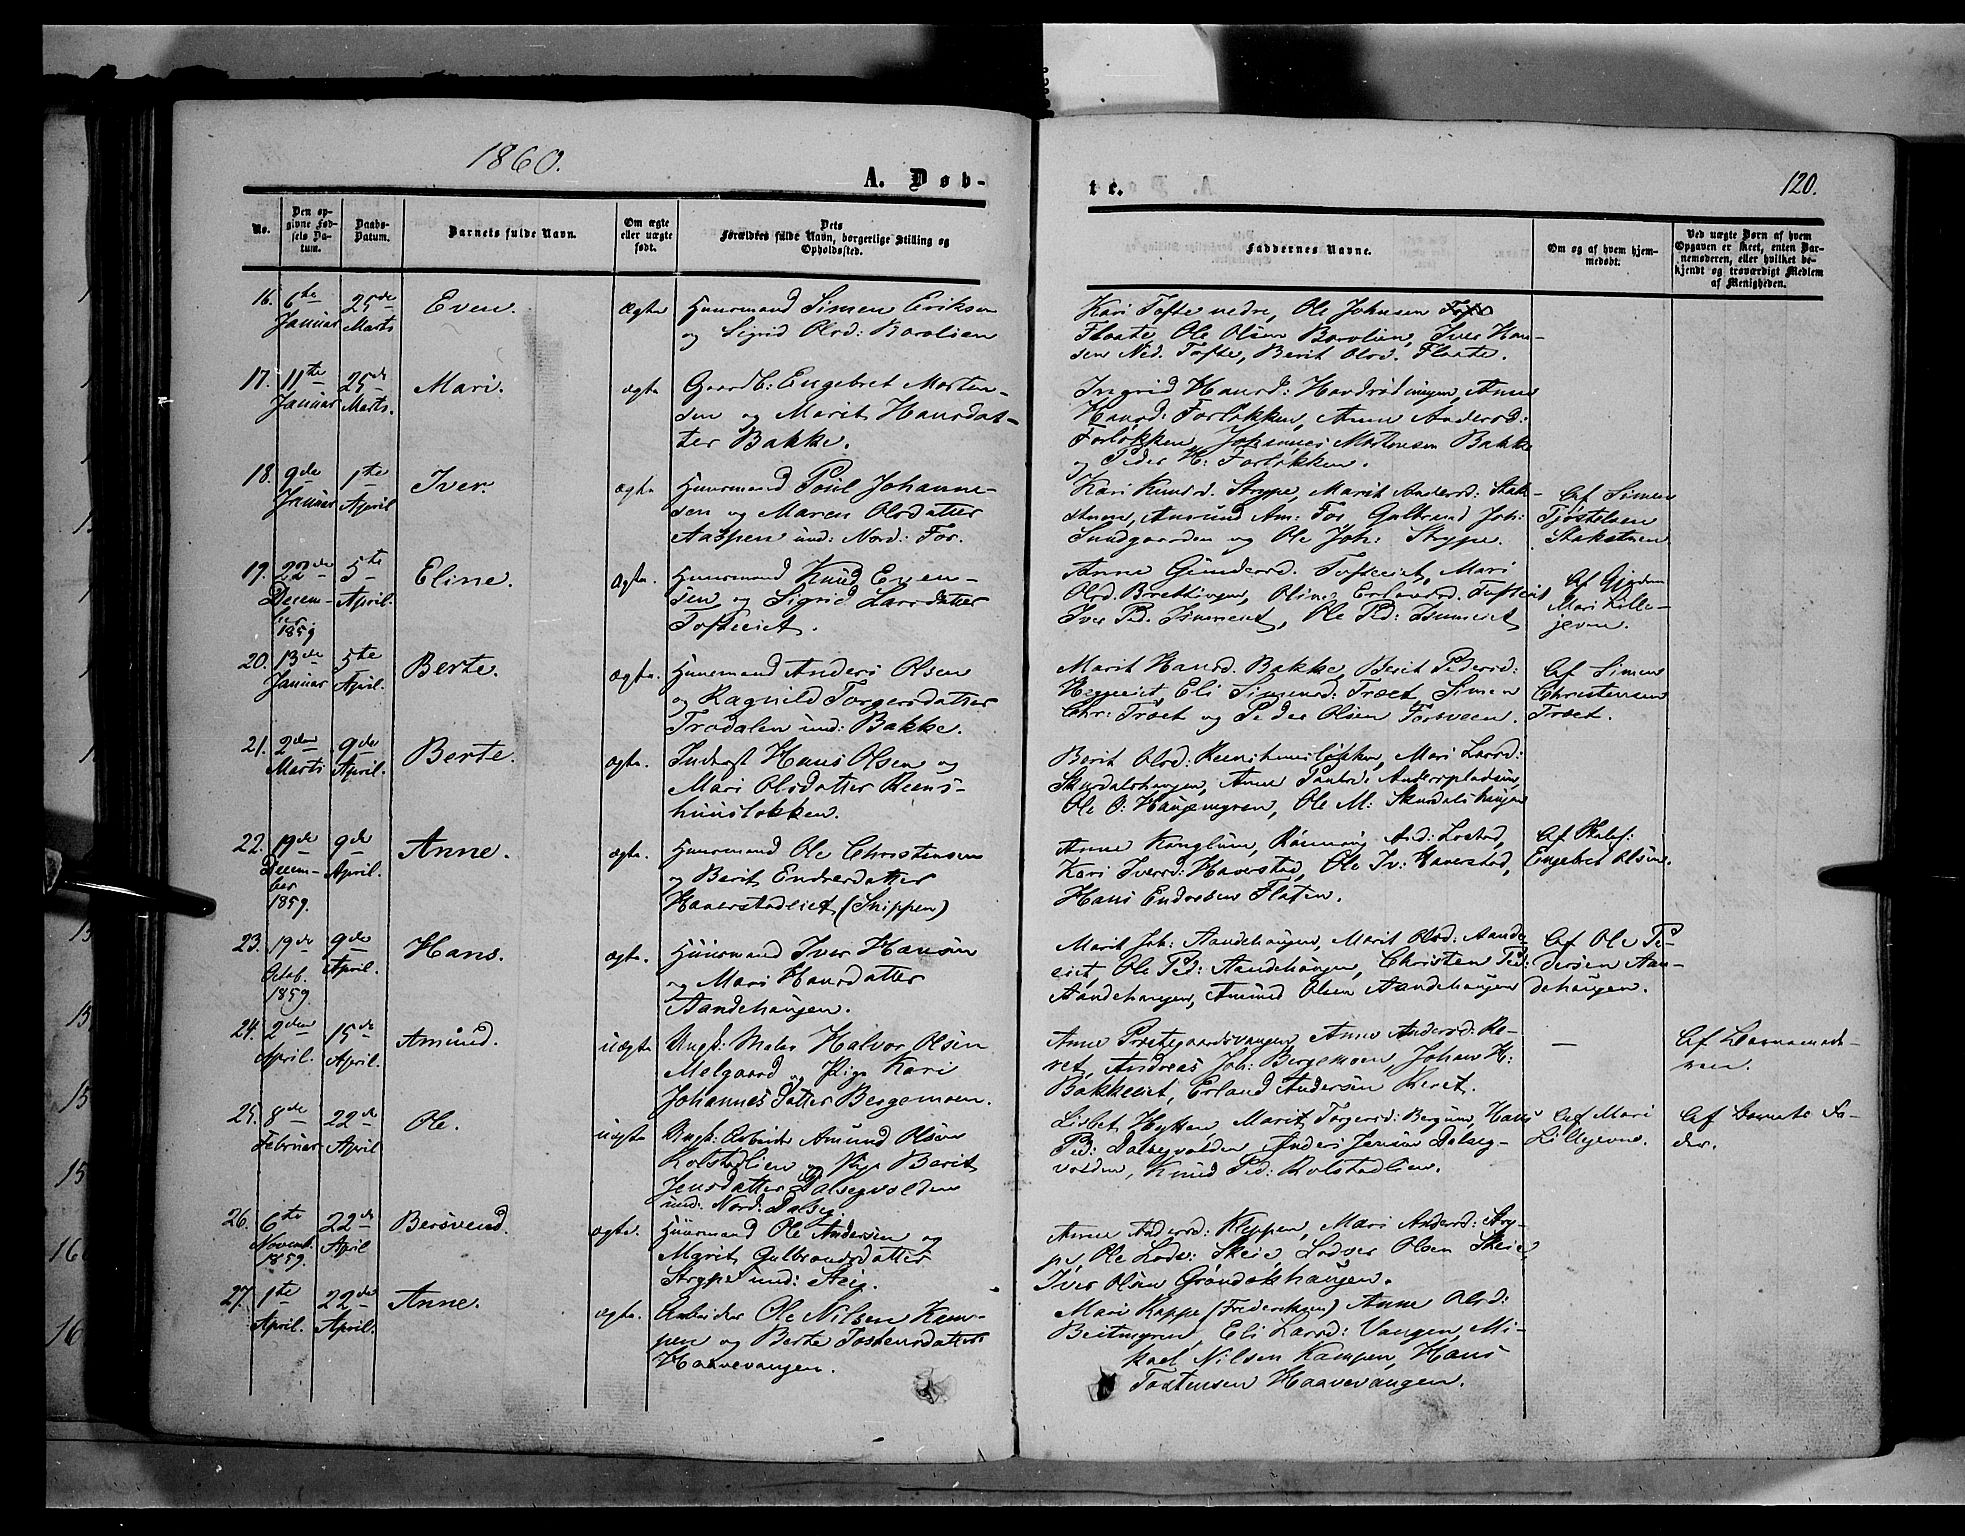 1860.
A. Døb-
te.
120.
No.
Den op-
givne Fød-
sels Da-
tum.
Daabs-
Datum.
Barnets fulde Navn.
Om ægte
eller uægte
født.
Dets
Forældres fulde Navn, borgerlige Stilling og
Opholdssted.
Faddernes Navne.
Om og af hvem hjem-
medøbt.
Ved uægte Børn af hvem
Opgaven er skeet, enten Bar-
nemoderen, eller hvilket be-
kjendt og troværdigt Medlem
af Menigheden.
16. 6te Januar 25de Marts Even. Ægte Huusmand Simen Eriksen
og Sigrid Olsd: Barolien
Kari Tofte nedre, Ole Johnsen
Flaate Ole Olsen Barolien, Iver Han-
sen Ned. Tofte, Berit Olsd. Flaate.
17. 11te Januar 25de Marts. Mari. ægte Gaardb: Engebret Morten-
sen og Marit Hansdat-
ter Bakke.
Ingrid Hansd: Anne
Hansd: Forløkken, Anne Andersd:
Forløkken, Johannes Mortensen Bakke
og Peder H: Forløkken.
18. 9de Januar 1ste April Iver. ægte Huusmand Poul Johanne-
sen og Maren Olsdatter
Aaspen und: Nord: For.
Kari Knudsd. Strype, Marit Andersd: Stak-
stuen, Amund Am: For, Gulbrand Joh:
Sundgaarden og Ole Joh: Strype.
Af Simen
Tjøstelsen
Stakstuen
19. 22de Decem-
ber
1859 5te April. Eline. Ægte. Huusmand Knud Even-
sen og Sigrid Larsdatter
Tofteeiet.
Anne Gundersd. Tofteeiet, Mari
Olsd. Brettingen, Oline Erlandsd. Tofteeiet
Iver Ped. Ole Ped:
Af
Mari Lille-
jevne.
20. 13de Januar 5te April. Berte. ægte. Huusmand Anders Olsen
og Ragnild Torgersdatter
Trodalen und: Bakke.
Marit Hansd. Bakke, Berit Pedersd:
Eli Simensd: Træet, Simen
Chr: Træet og Peder Olsen Forsveen.
Af Simen
Christensen
Træet.
21. 2den Marts 9de April. Berte. ægte. Inderst Hans Olsen og
Mari Olsdatter Reens-
huusløkken.
Berit Olsd: Mari Larsd:
Skurdalshaugen, Anne Poulsd: Anderspladsen,
Ole O: Haugemyren, Ole M: Skurdalshaugen
22. 19de Decem-
ber
1859. 9de April. Anne. ægte. Huusmand Ole Christensen
og Berit Endresdatter
Haverstadeiet (Snippen)
Anne Konglum, Rønnaug And: Lostad,
Kari Iversd: Haverstad, Ole Iv: Haverstad,
Hans Endresen Flaten.
Af Skolel:
Engebret Olsen.
23. 19de Octob.
1859. 9de April. Hans. ægte. Huusmand Iver Hansen
og Mari Hansdatter
Aandehaugen.
Marit Joh: Aandehaugen, Marit Olsd: Aande-
eiet, Ole Ped: Aandehaugen, Christen Ped:
Aandehaugen, Amund Olsen Aandehaugen
Af Ole Pe-
dersen Aan-
dehaugen.
24. 2den April. 15de April. Amund. uægte Ungk: Maler Halvor Olsen
Melgaard og Pige Kari
Johannesdatter Bergemoen.
Anne Præstegaardsvangen, Anne Andersd: Re-
vet, Andreas Joh: Bergemoen, Johan H:
Bakkeeiet, Erland Andersen Revet.
—
Af Barnemode-
ren.
25. 8de Februar 22de April Ole. uægte Ungk: Arbeider Amund Olsen
Kolstadlien og Pige Berit
Jensdatter Dalsegvolden
und: Nord: Dalseg.
Lisbet Hytten, Marit Torgersd: Bergum, Hans
Ped: Dalsegvolden, Anders Jensen Dalseg-
volden, Knud Ped: Kolstadlien.
Af Mari
Lillejevne.
Af Barnets Fa-
der.
26. 6te Novemb.
1859. 22de April Bersvend. ægte. Huusmand Ole Andersen og
Marit Gulbrandsdatter
Strype und: Steig.
Anne Andersd: Kleppen, Mari Andersd: Stry-
pe, Ole Lods: Skeie, Lodver Olsen Skeie,
Iver Olsen Grøndalshaugen.
27. 1ste April. 22de April. Anne. ægte. Arbeider Ole Nilsen Kam-
pen og Berte Tostensdatter
Haavevangen.
Mari Koppe (Frederiksen) Anne Olsd:
Beitmyren, Eli Larsd: Vangen, Mi-
kael Nilsen Kampen, Hans
Tostensen Haavevangen.